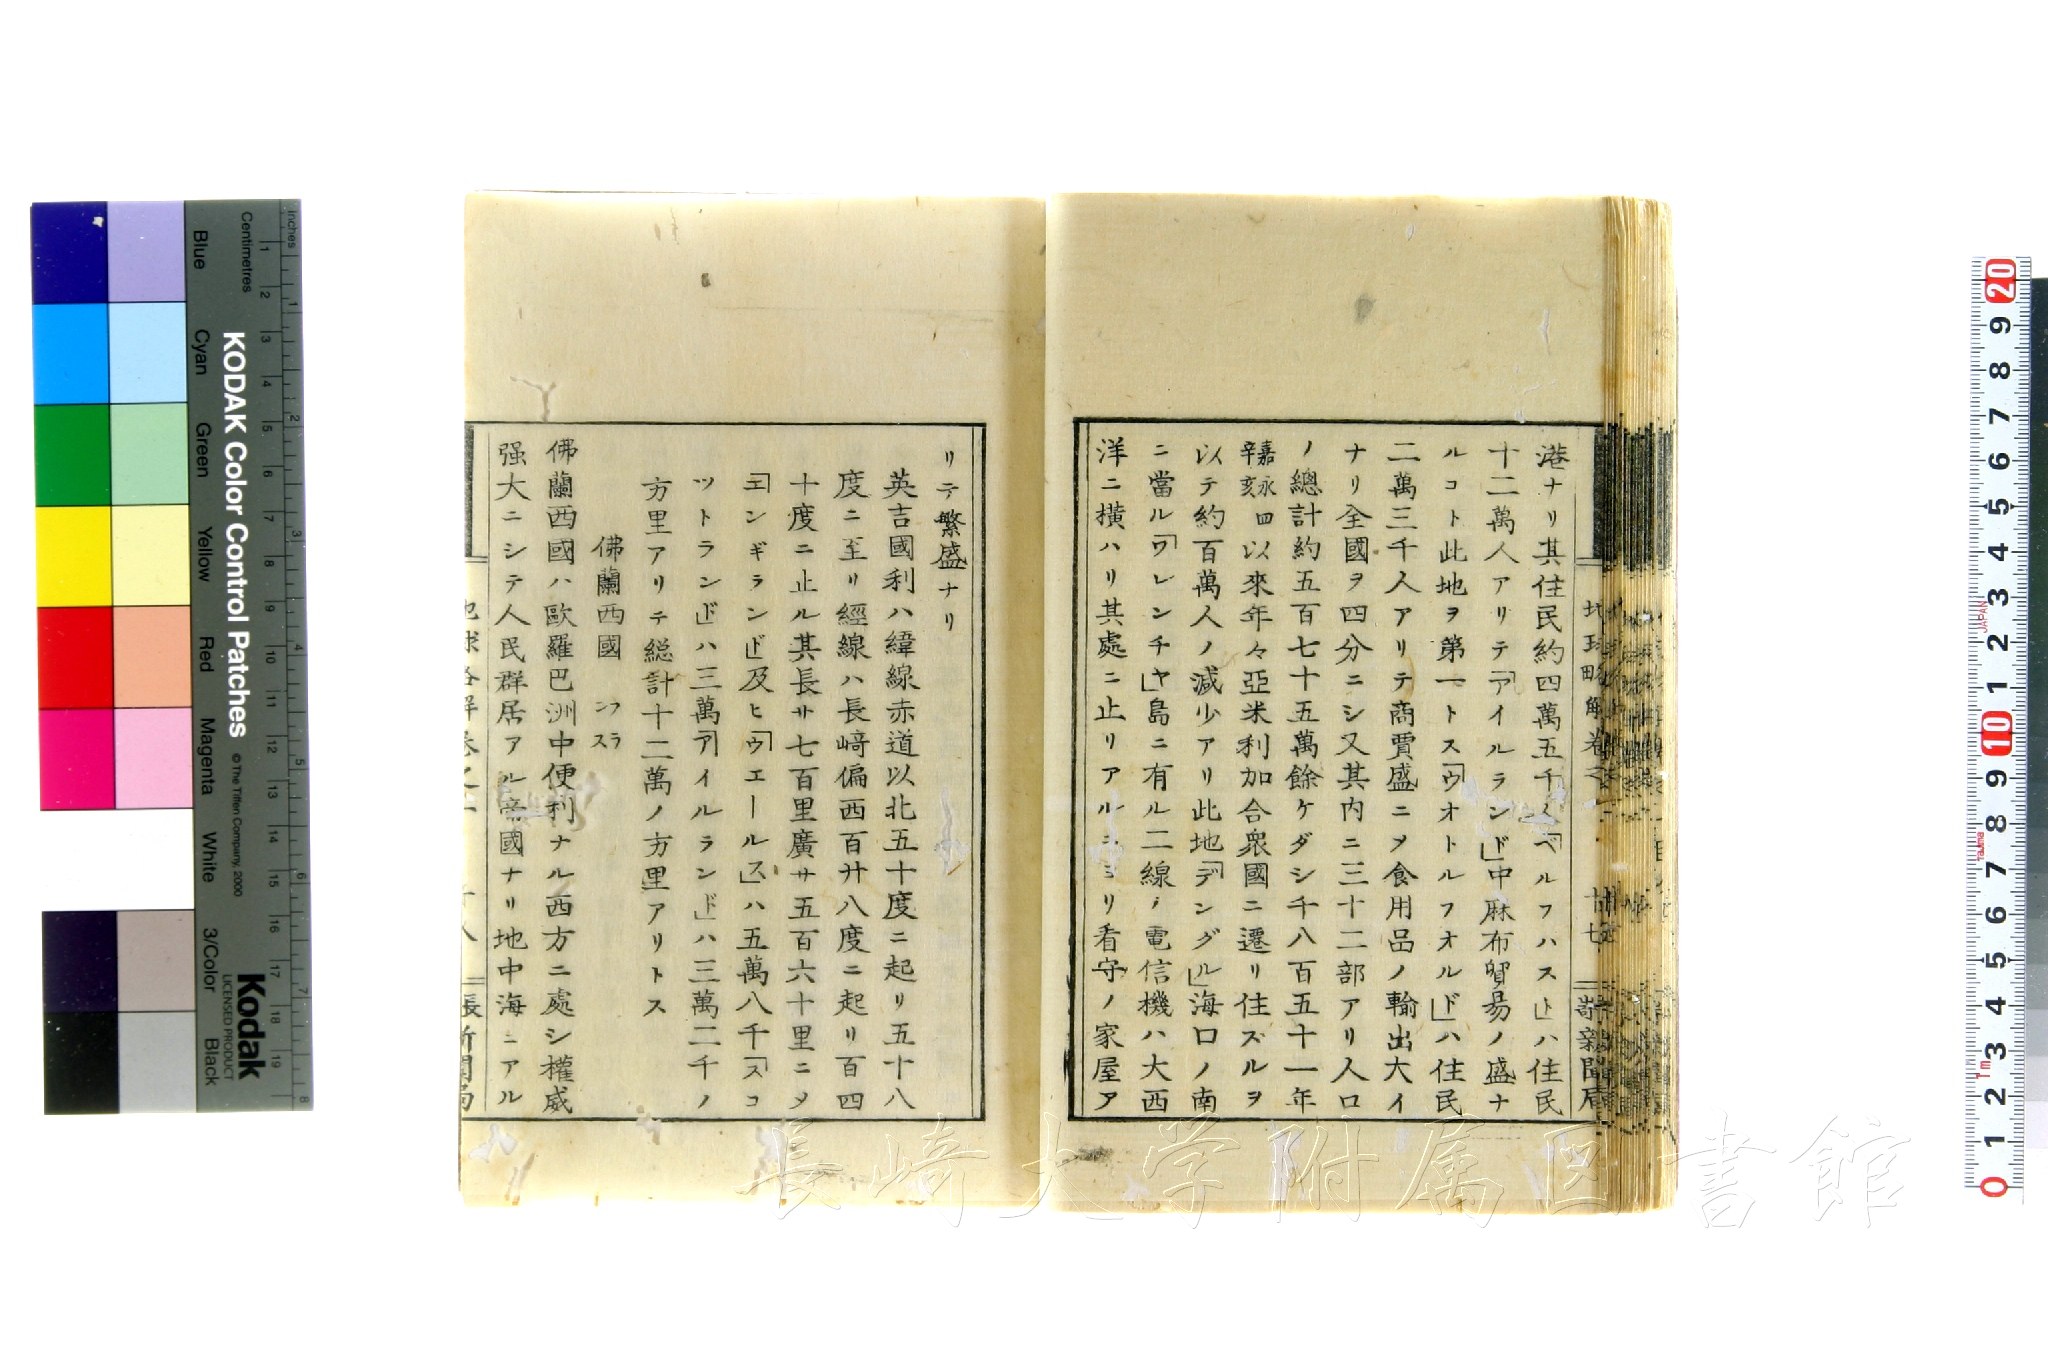 港ナリ其住民約四萬五千人「ベルフハスト」ハ住民
十二萬人アリテ「アイルランド」中麻布貿易ノ盛ナ
ルコト此地ヲ第一トス「ウオトルフオルド」ハ住民
二萬三千人アリテ商賈盛ニヲ食用品ノ輸出大イ
ナリ全國ヲ四分ニシ又其内ニ三十二部アリ人口
ノ總計約五百七十五萬餘ケダシ千八百五十一年
嘉永四辛亥以來年々亞米利加合衆國ニ遷リ住ズルヲ
以テ約百萬人ノ減少アリ此地「デングル」海口ノ南
ニ當ル「ワレンチヤ」島ニ有ル二線ノ電信機ハ大西
洋ニ横ハリ其處ニ止リアルニヨリ看守ノ家屋ア
リテ繁盛ナリ
英吉國利ハ緯線赤道以北五十度ニ起リ五十八
度ニ至リ經線ハ長﨑偏西百廿八度ニ起リ百四
十度ニ止ル其長サ七百里廣サ五百六十里ニメ
「エンギランド」及ヒ「ウエールス」ハ五萬八千「スコ
ツトランド」ハ三萬「アイルランド」ハ三萬二千ノ
方里アリテ総計十二萬ノ方里アリトス
佛蘭西國 フランス
佛蘭西國ハ歐羅巴洲中便利ナル西方ニ處シ權威
强大ニシテ人民群居アル帝國ナリ地中海ニアル
KODAK Color Control Patches
© The Tiffen Company, 2000
Kodak
LICENSED PRODUCT
Blue
Cyan
Green
Yellow
Red
Magenta
White
3/Color
Black
Centimetres
Inches
長崎大学附属図書館